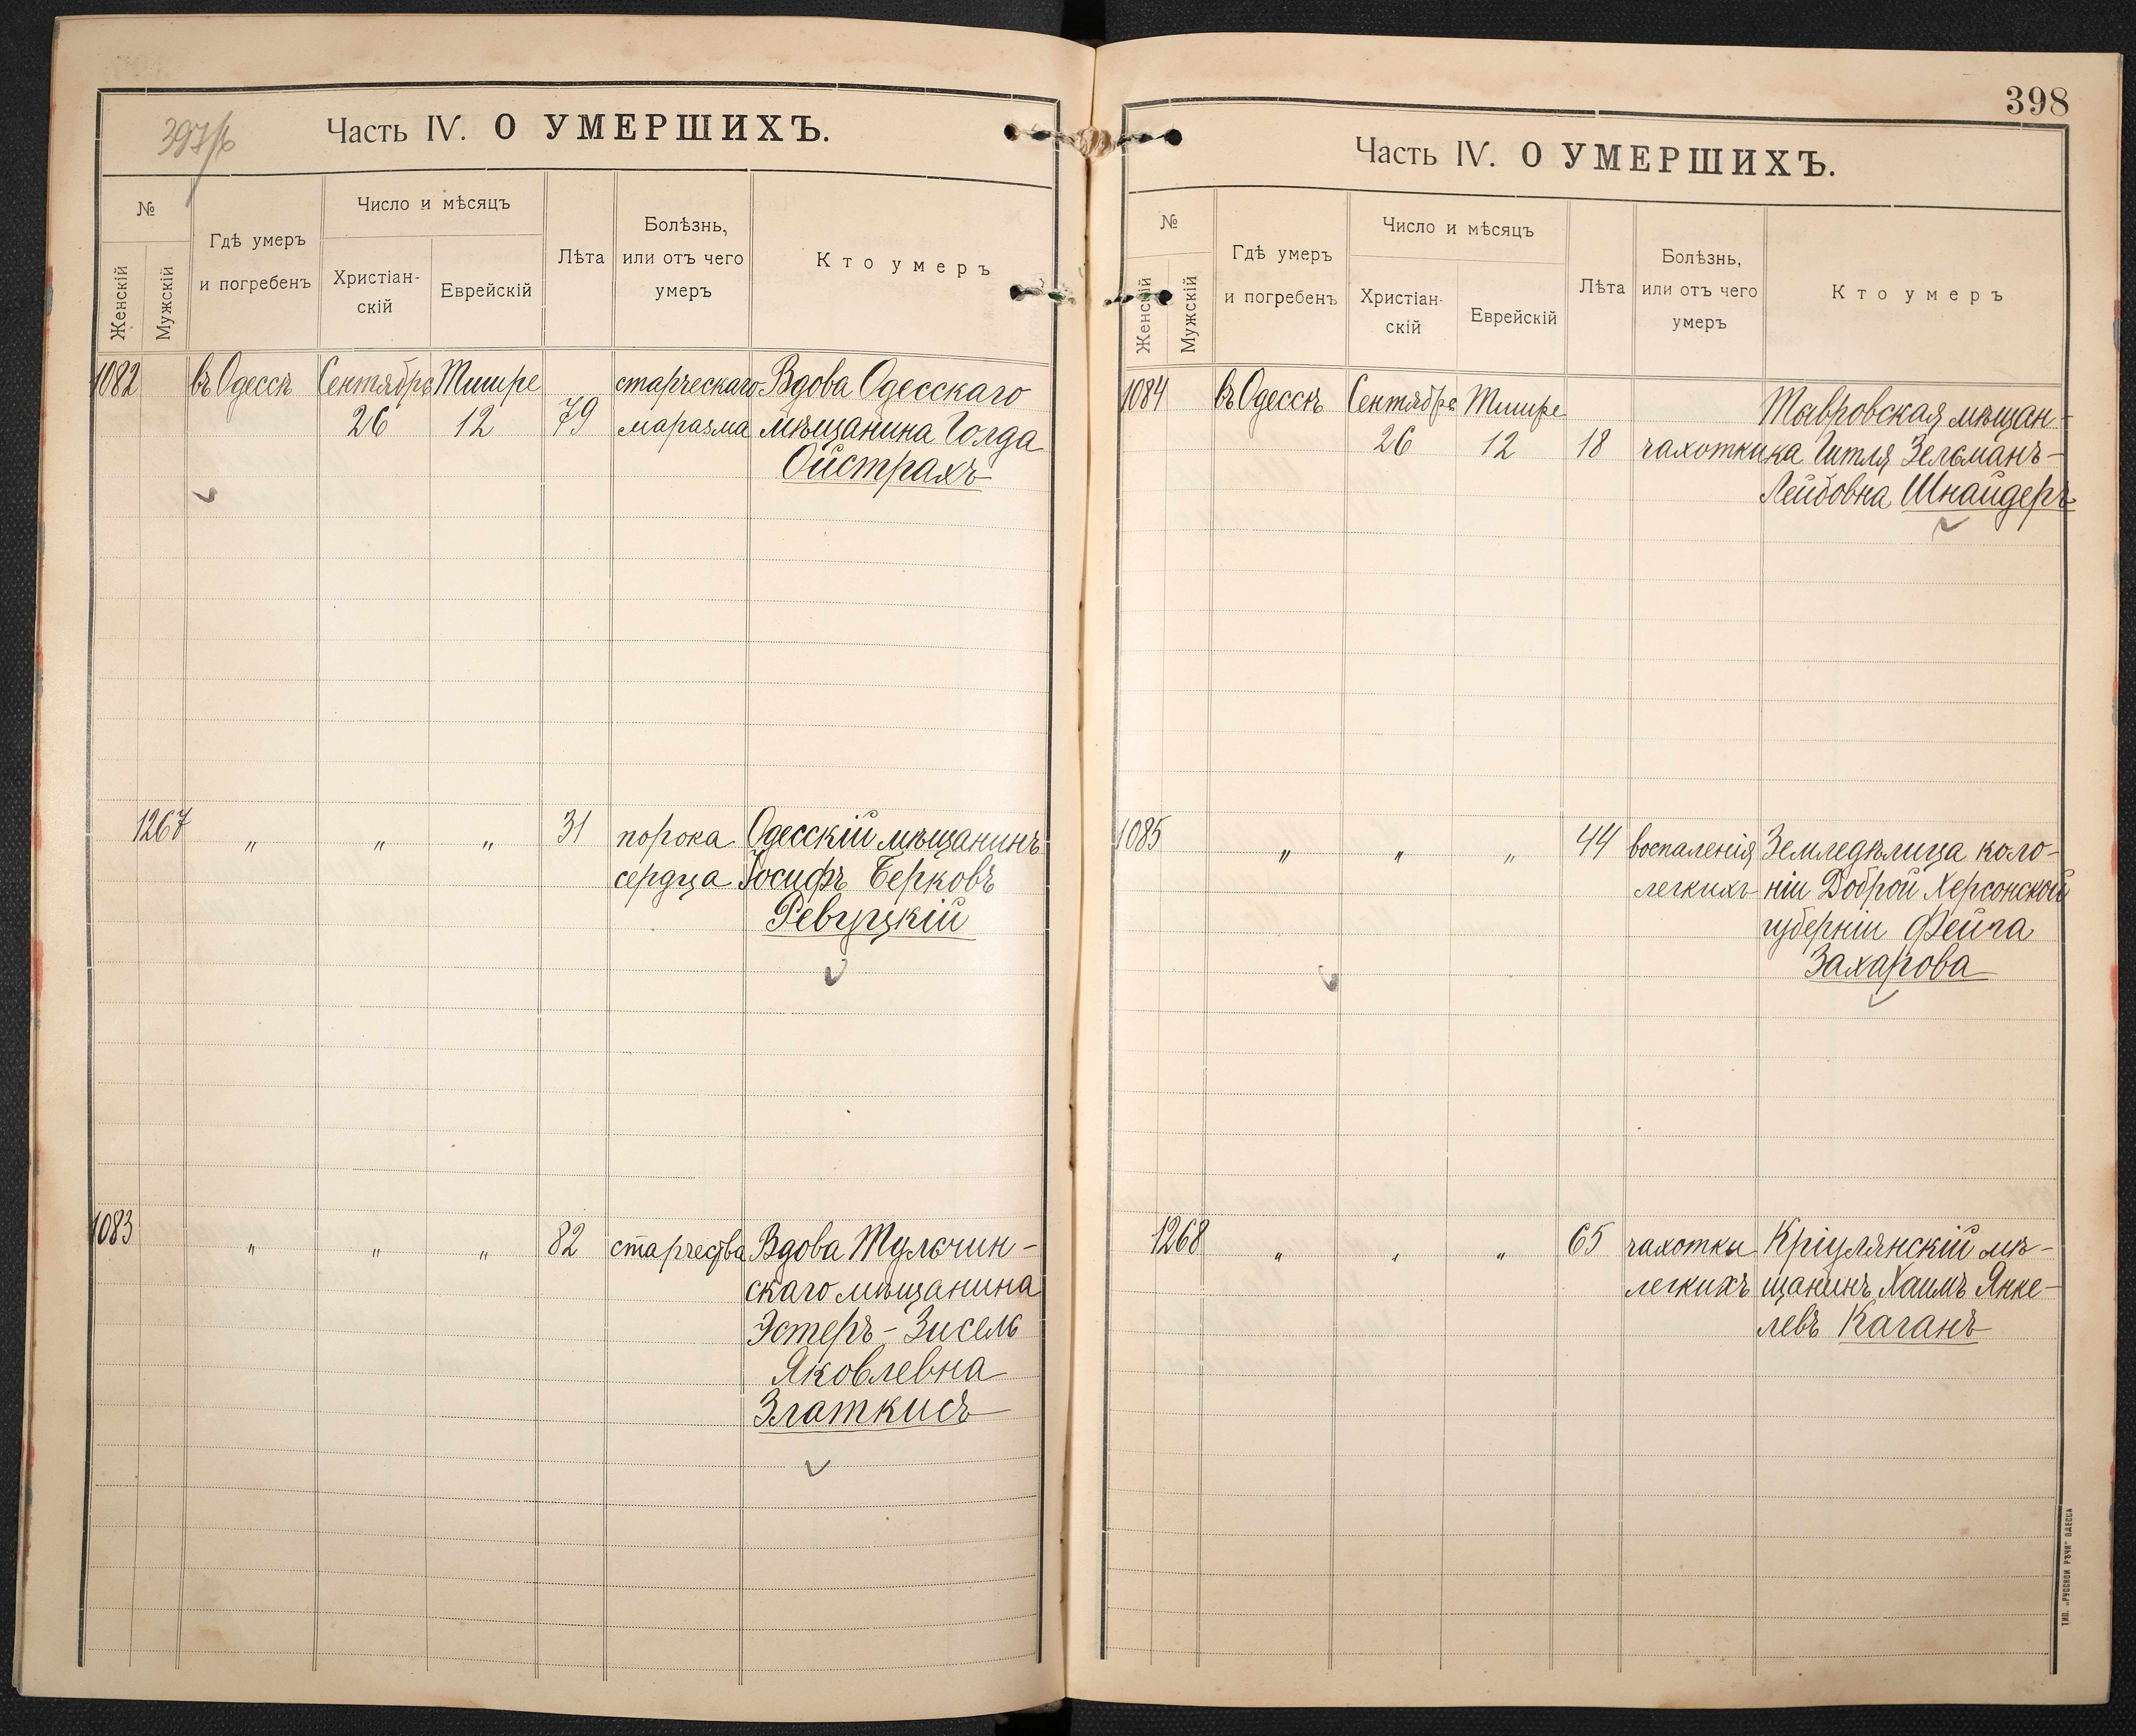 397/б
Часть IV. О УМЕРШИХЪ.
№
Женскій
Мужскій
Гдѣ умеръ
и погребенъ
Число и мѣсяцъ
Христіан-
скій
Еврейскій
Лѣта
Болѣзнь,
или отъ чего
умеръ
Кто умеръ
1082 въ Одессѣ Сентябрь Тишре старческаго Вдова Одесскаго
26 12 79 маразма мѣщанина Голда
Ойстрахъ
1267 " " " 31 порока Одесскій мѣщанинъ
сердца Іосифъ Берковъ
Ревуцкій
1083 " " " 82 старчества Вдова Тульчин-
скаго мѣщанина
Эстеръ-Зисель
Яковлевна
Златкисъ
398
Часть IV. О УМЕРШИХЪ.
№
Женскій
Мужскій
Гдѣ умеръ
и погребенъ
Число и мѣсяцъ
Христіан-
скій
Еврейскій
Лѣта
Болѣзнь,
или отъ чего
умеръ
Кто умеръ
1084 въ Одессѣ Сентябрь Тишре Мавровская мѣщан-
26 12 18 чахотки ка Гитля Зельманъ-
Лейбовна Шнайдеръ
1085 " " " 44 воспаленія Земледѣлица коло-
легкихъ ніи Доброй Херсонской
губерніи Фейга
Захарова
1268 " " " 65 чахотки Кріулянскій мѣ-
легкихъ щанинъ Хаимъ Янке-
левъ Каганъ
ТИП. „РУССКОЙ РѢЧИ" ОДЕССА